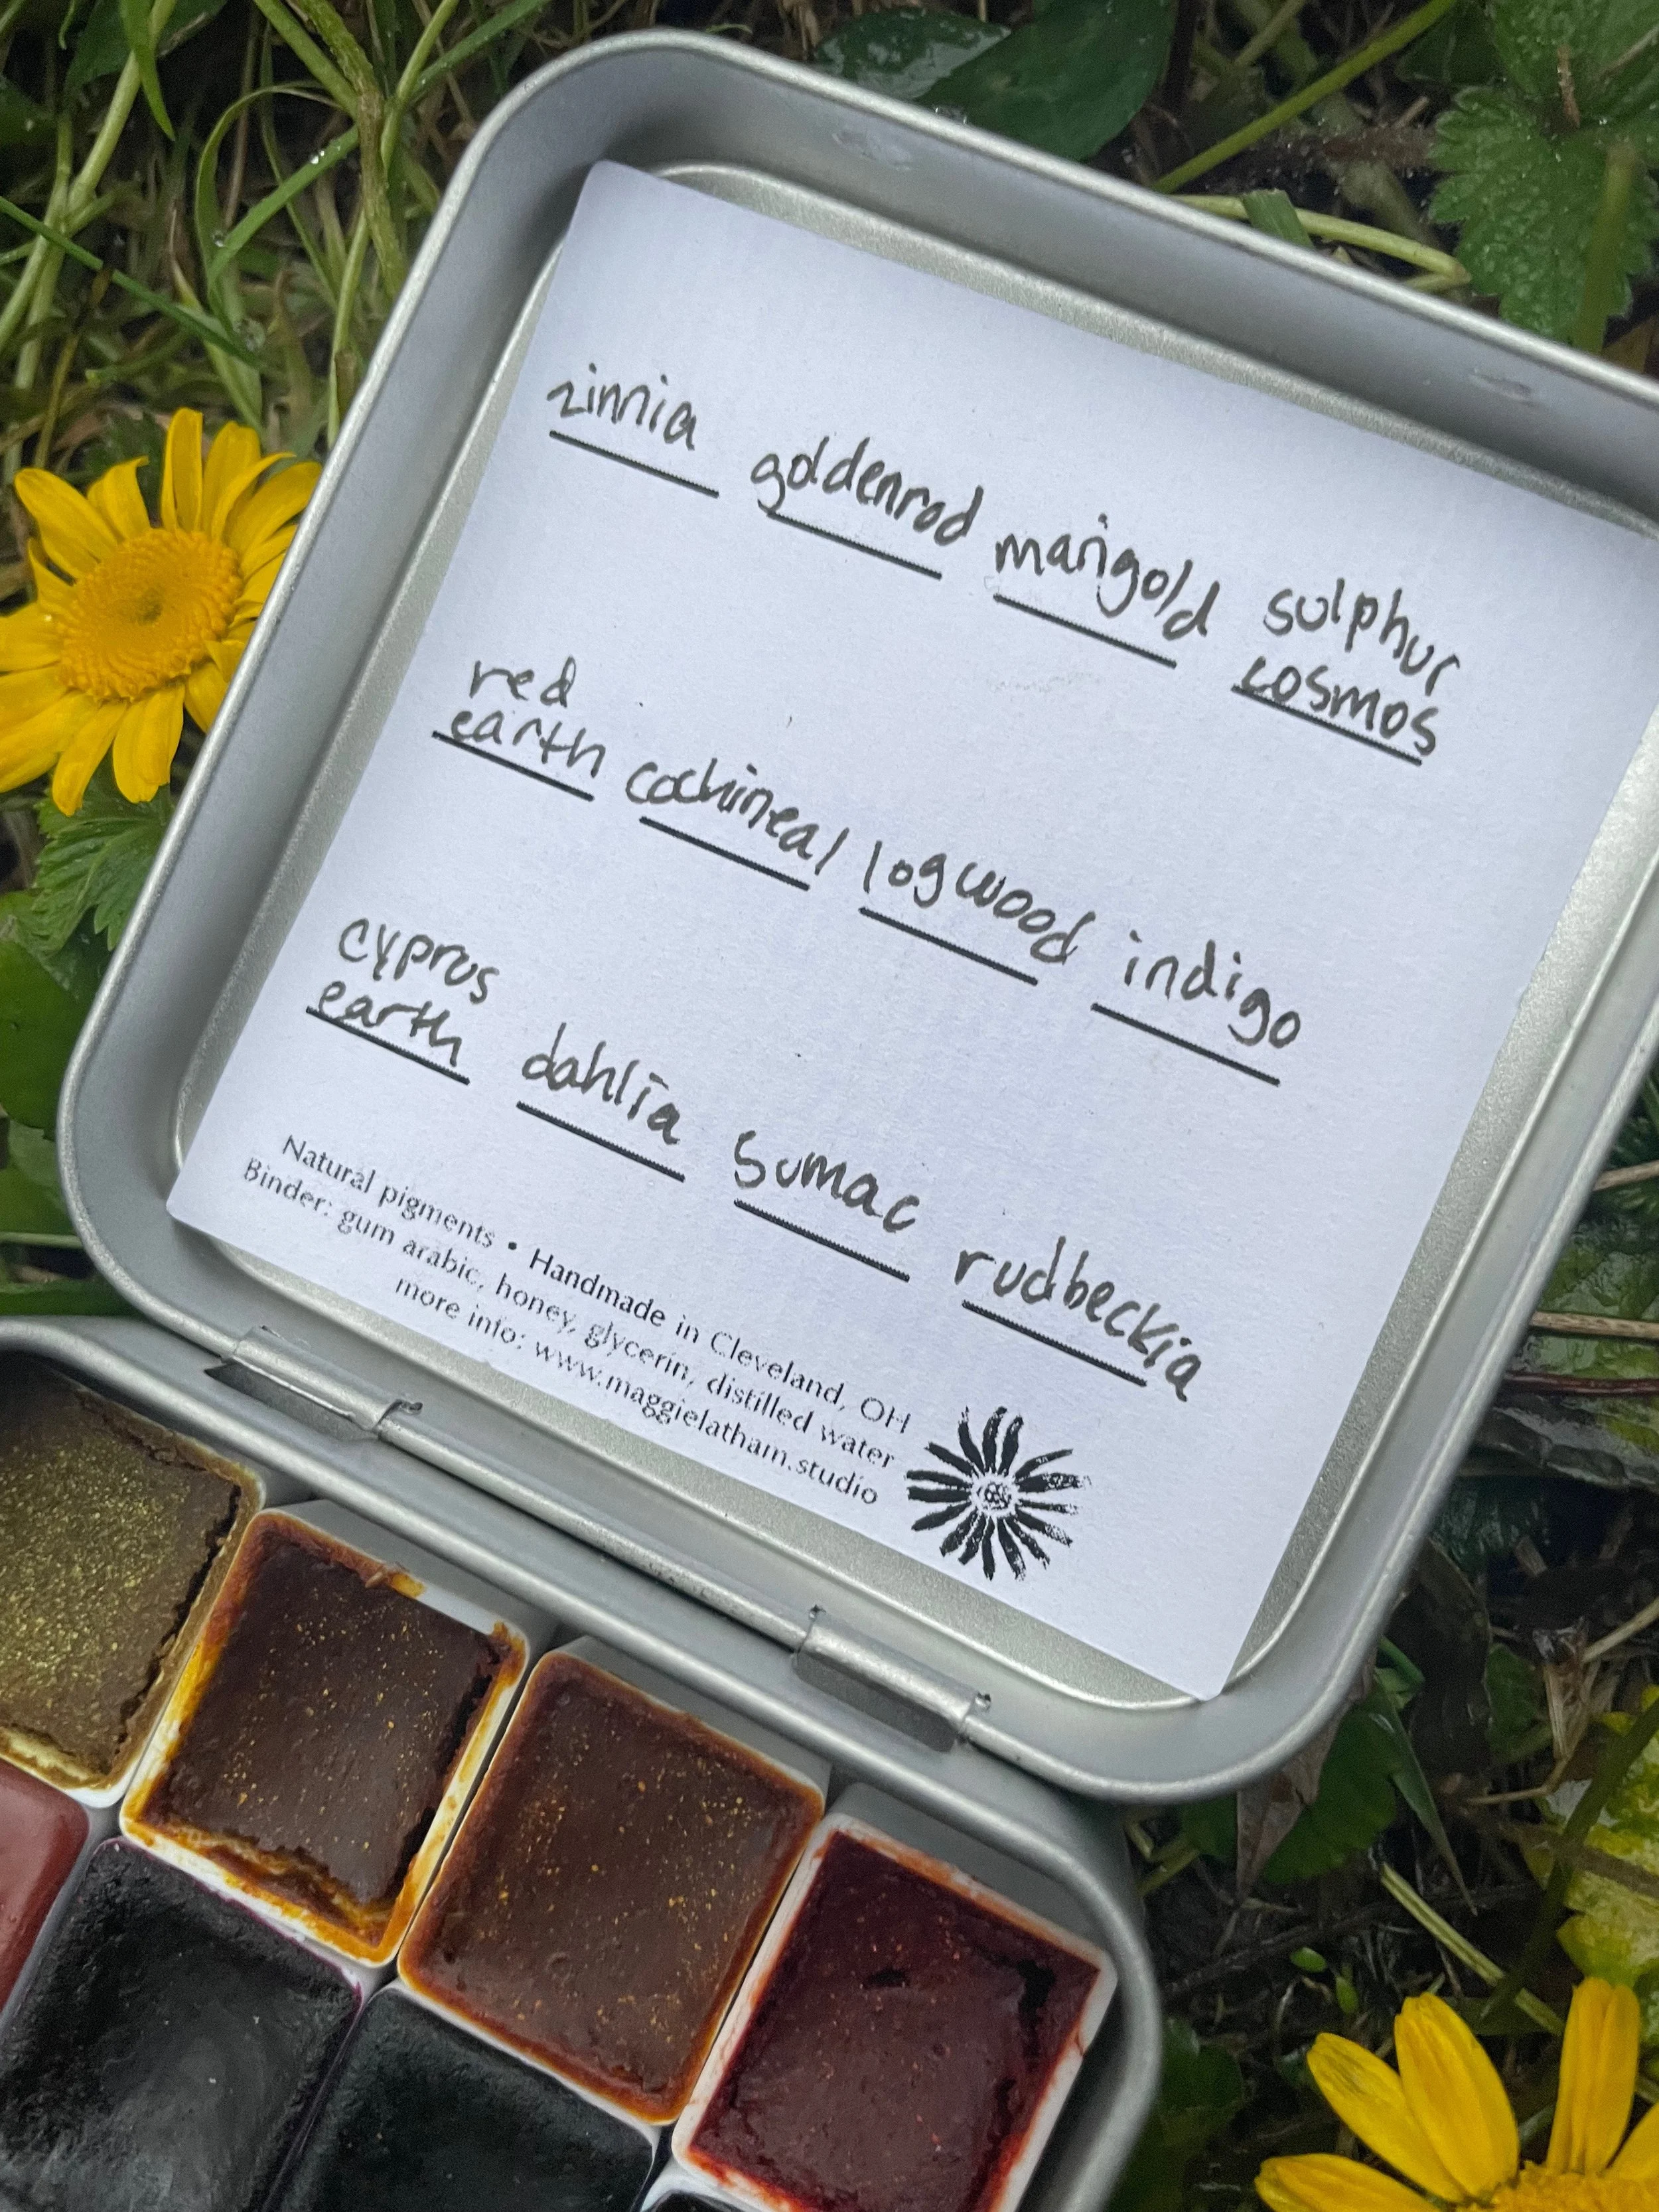 zinnia goldenrod marigold sulphur
cosmos
red
earth cochineal logwood indigo
cyprus
earth dahlia sumac rudbeckia
Natural pigments • Handmade in Cleveland, OH
Binder: gum arabic, honey, glycerin, distilled water
more info: www.maggielatham.studio